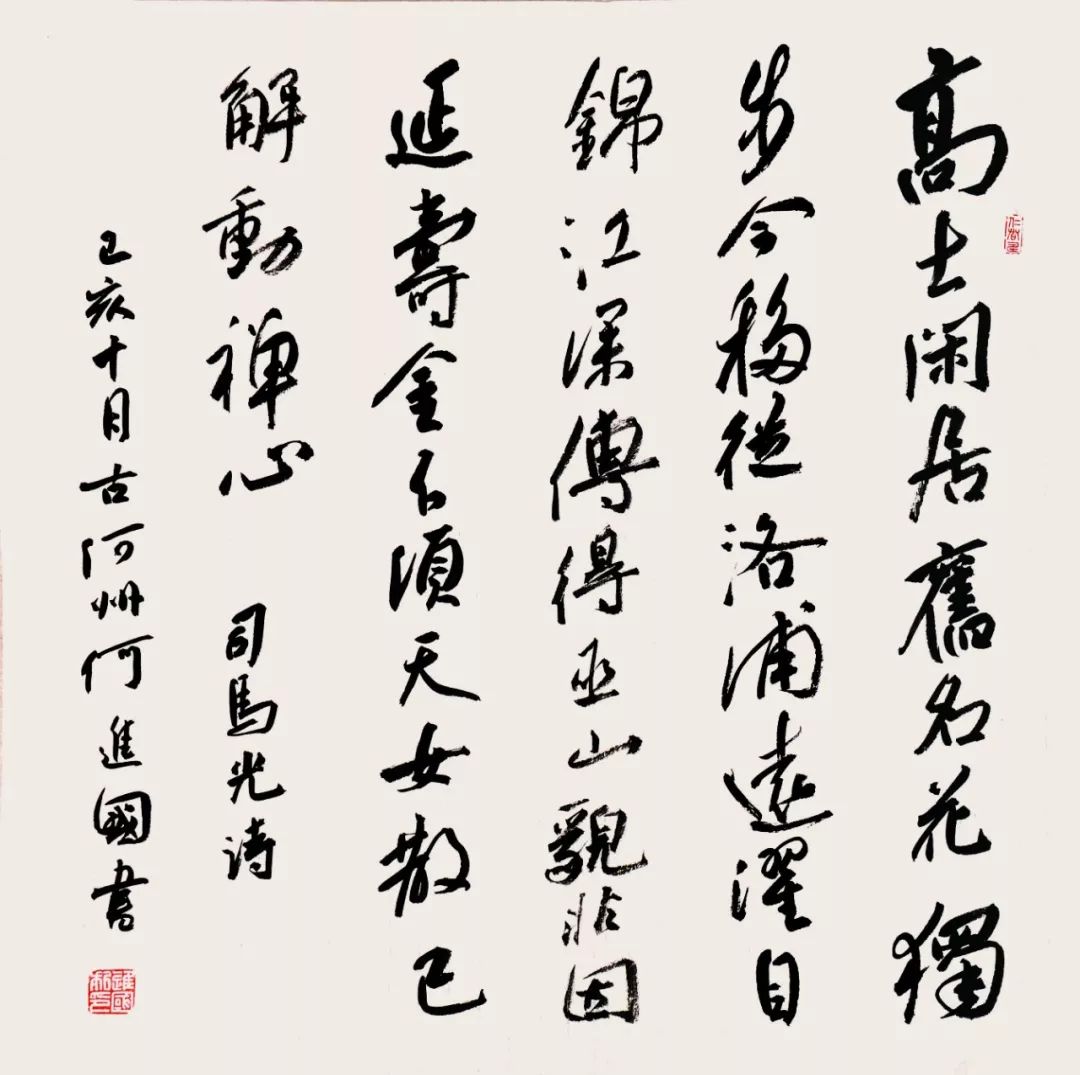 高士閑居舊名花獨
步今移從洛浦遠濯自
錦江深傳得巫山貌非因
延壽金不須天女散已
解動禅心 司馬光詩
己亥十月古河州何進國書